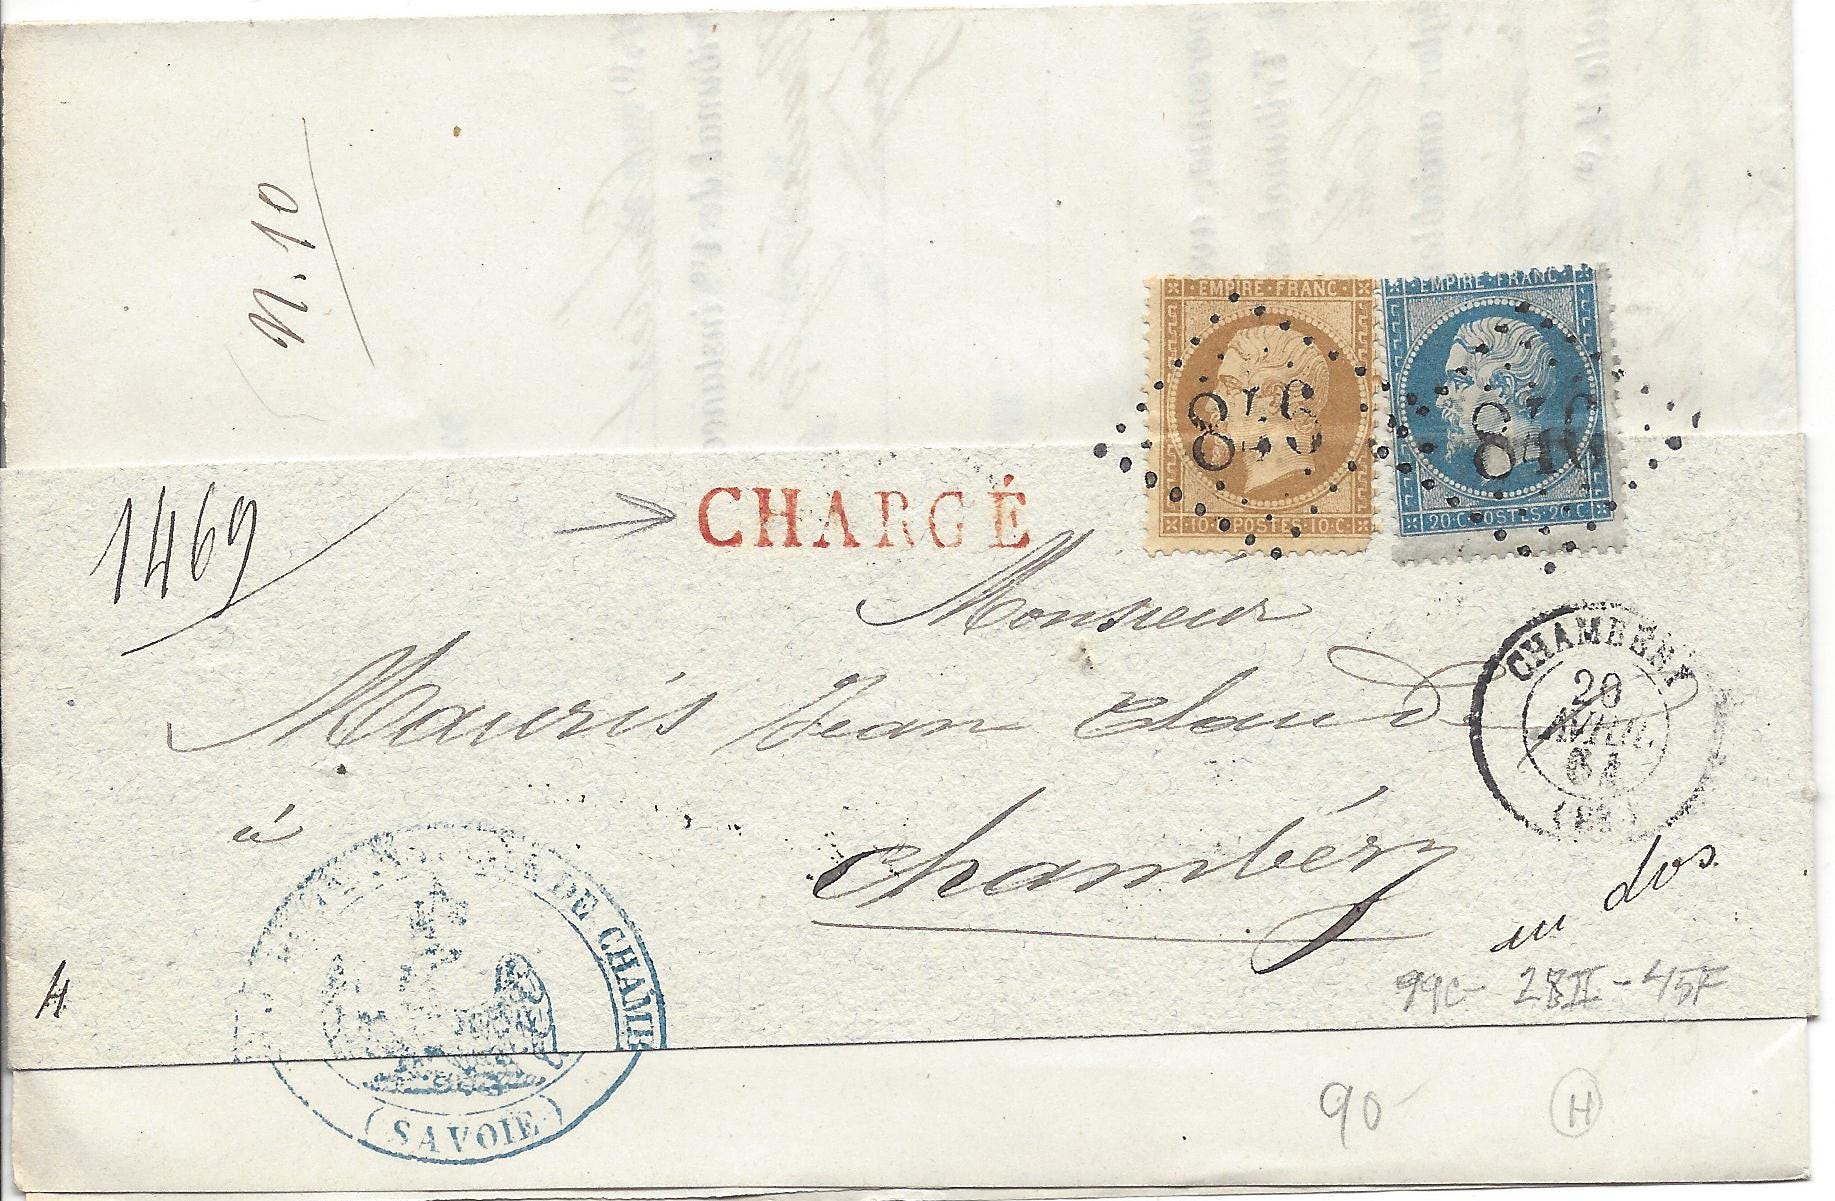 N. 10
EMPIRE FRANC
846
10 C POSTES 10 C
EMPIRE FRANC
846
20 C POSTES 20 C
1469
CHARGÉ
Monsieur
Mauris Jean Claude
à
Chambéry
CHAMBÉRY
20
AVRIL
64
(88)
DE CHAMB
(SAVOIE)
au dos
99c - 28II - 45F
H
90
H